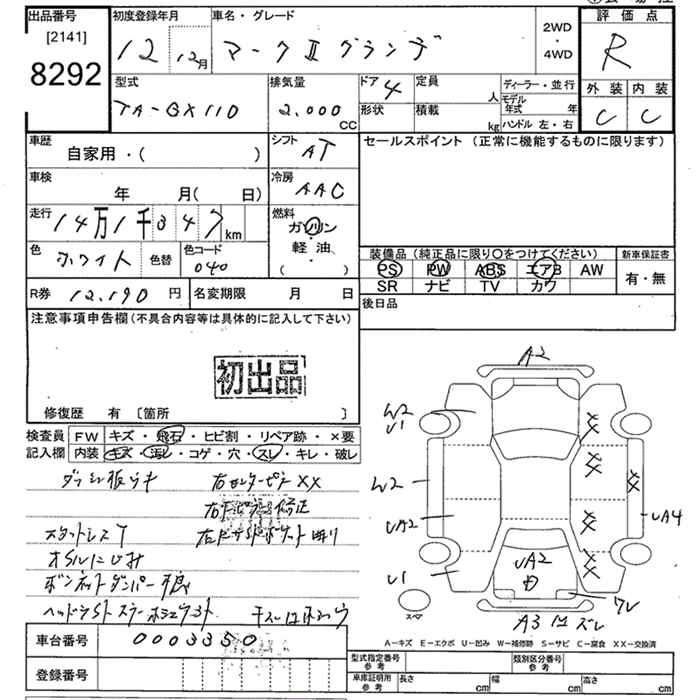 出品番号
[2141]
8292
初度登録年月
12 12月
車名・グレード
マークⅡ グランデ
2WD
・
4WD
評価点
R
外装 内装
C C
型式
TA-GX110
排気量
2,000
CC
ドア
4
形状
定員
人
積載
kg
ディーラー・並行
モデル年式 年
ハンドル 左・右
車歴
自家用・( )
シフト
AT
車検
年 月( 日)
冷房
AAC
走行
14万1千347
km
燃料
ガソリン
軽油
( )
色
ホワイト
色替
色コード
040
セールスポイント (正常に機能するものに限ります)
装備品 (純正品に限り〇をつけてください)
PS PW ABS エアB AW
SR ナビ TV カワ
新車保証書
有・無
R券
12,190 円
名変期限 月 日
後日品
注意事項申告欄(不具合内容等は具体的に記入して下さい)
初出品
修復歴 有 〔箇所 〕
検査員
記入欄
FW キズ・飛石・ヒビ割・リペア跡・×要
内装 キズ・汚レ・コゲ・穴・スレ・キレ・破レ
右センターピラーXX
スタットレスT
オイルにじみ
ボンネットダンパー
車台番号
0003350
登録番号
A2
W2
U1
W2
UA2
U1
UA2
UA4
ワレ
A3
スペア
A-キズ E-エクボ U-凹み W-補修跡 S-サビ C-腐食 XX-交換済
型式指定番号
参考
類別区分番号
参考
車庫証明用
参考
長さ cm
幅 cm
高さ cm